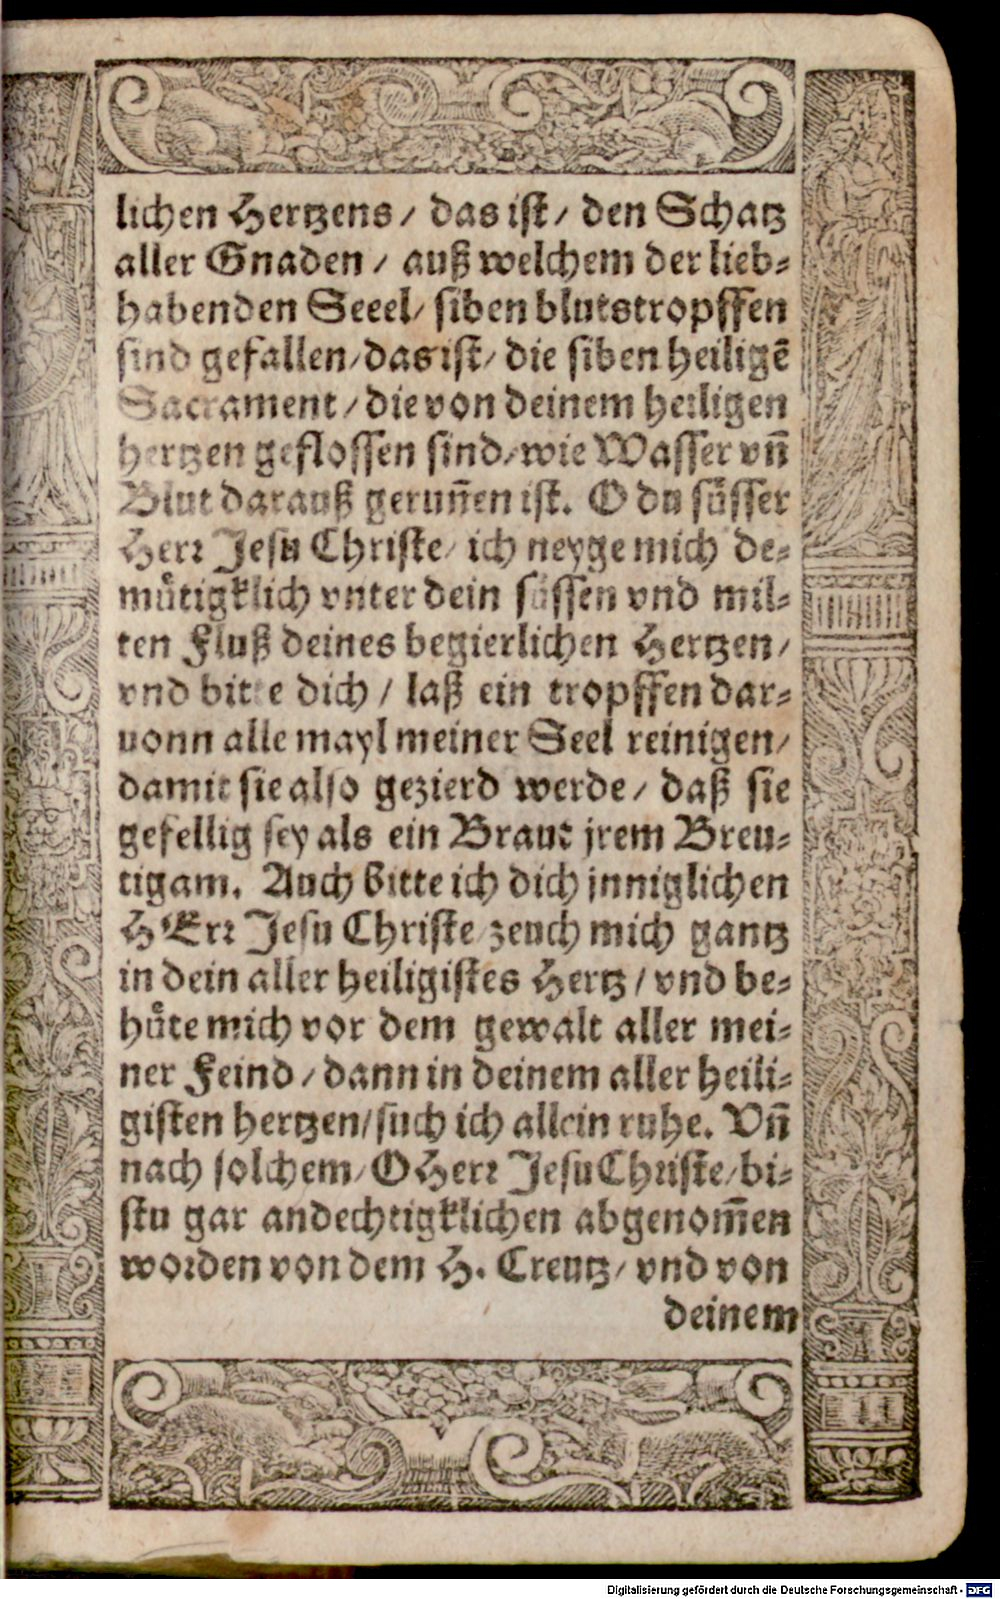 lichen Hertzens / das ist / den Schatz
aller Gnaden / auß welchem der lieb⸗
habenden Seeel / siben blutstropffen
sind gefallen / das ist / die siben heiligē
Sacrament / die von deinem heiligen
hertzen geflossen sind / wie Wasser vn̄
Blut darauß gerun̄en ist. O du süsser
Herr Jesu Christe / ich neyge mich de⸗
mütigklich vnter dein süssen vnd mil⸗
ten Fluß deines begierlichen Hertzen /
vnd bitte dich / laß ein tropffen dar⸗
uonn alle mayl meiner Seel reinigen /
damit sie also gezierd werde / daß sie
gefellig sey als ein Braut jrem Breu⸗
tigam. Auch bitte ich dich jnniglichen
HErr Jesu Christe / zeuch mich gantz
in dein aller heiligistes Hertz / vnd be⸗
hüte mich vor dem gewalt aller mei⸗
ner Feind / dann in deinem aller heili⸗
gisten hertzen / such ich allein ruhe. Vn̄
nach solchem / O Herr Jesu Christe / bi⸗
stu gar andechtigklichen abgenom̄en
worden von dem H. Creutz / vnd von
deinem
Digitalisierung gefördert durch die Deutsche Forschungsgemeinschaft - DFG